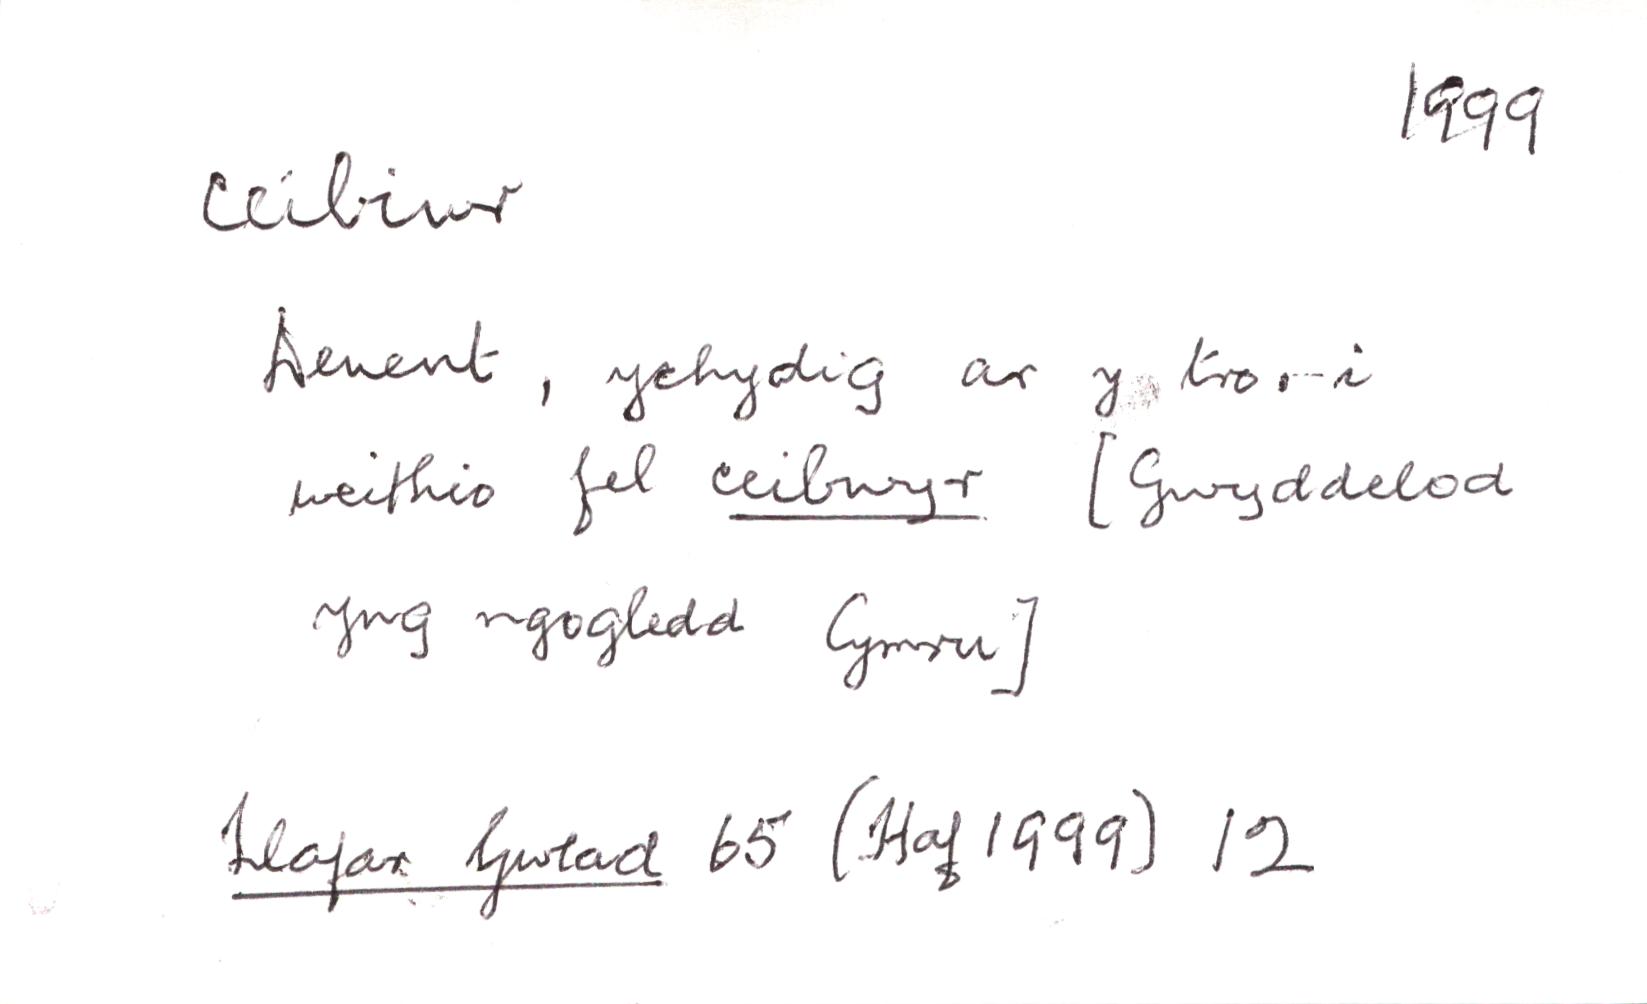 1999
ceibiwr
Deuent, ychydig ar y tro, i
weithio fel ceibwyr [Gwyddelod
yng ngogledd Cymru]
Llafar Gwlad 65 (Haf 1999) 12